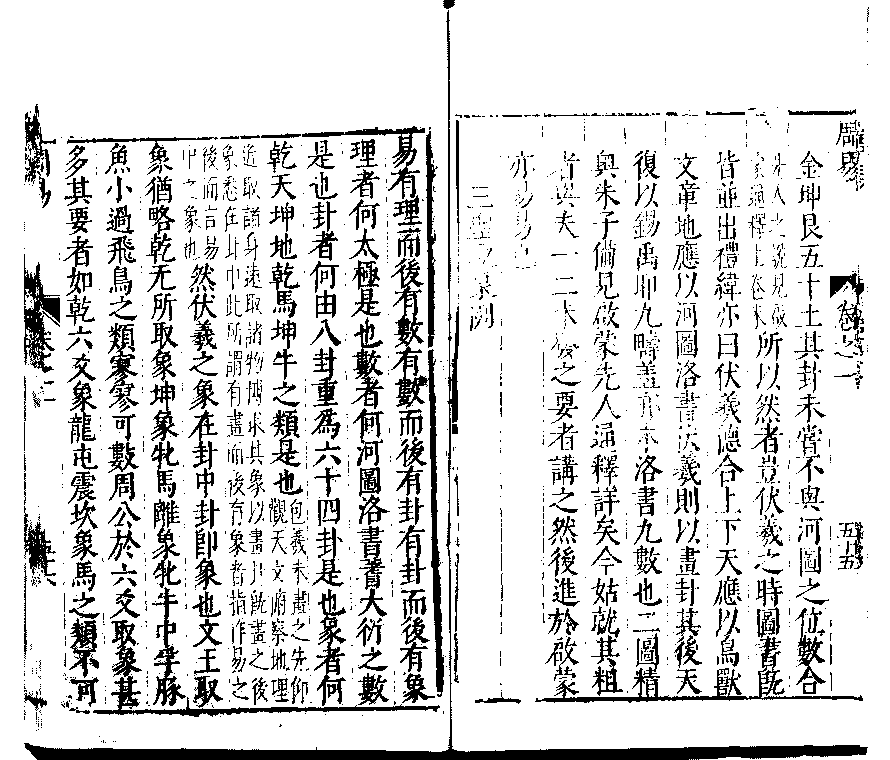 周易
卷之一
五十五
金坤艮五十土其卦未嘗不與河圖之位數合
先人之說見啟
蒙通釋上卷末
所以然者豈伏羲之時圖書既
皆並出禮緯亦曰伏羲德合上下天應以鳥獸
文章地應以河圖洛書伏羲則以畫卦其後天
復以錫禹卽九疇盖亦本洛書九數也二圖精
與朱子備見啟蒙先人通釋詳矣今姑就其粗
者與夫一二本發之要者講之然後進於啟蒙
亦易易
三聖取象例
易有理而後有數有數而後有卦有卦而後有象
理者何太極是也數者何河圖洛書蓍大衍之數
是也卦者何由八卦重爲六十四卦是也象者何
乾天坤地乾馬坤牛之類是也
包羲未畫之先仰
觀天文府察地理
近取諸身遠取諸物博求其象以畫卦旣畫之後
象悉在卦中此所謂有畫而後有象者指作易之
後而言易
中之象也
然伏羲之象在卦中卦卽象也文王取
象猶略乾无所取象坤象牝馬離象牝牛中孚豚
魚小過飛鳥之類寥寥可數周公於六爻取象甚
多其要者如乾六爻象龍屯震坎象馬之類不可
周易
卷之一
五十六